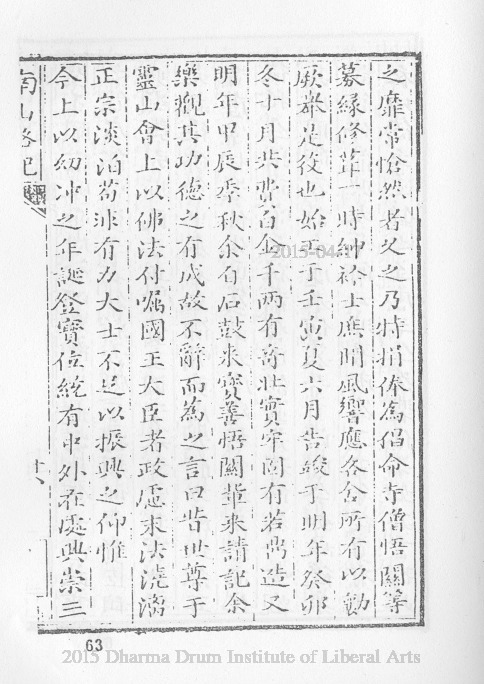 之靡常愴然若久之乃特捐俸為倡命寺僧悟闗等
募緣修葺一時紳衿士庶聞風響應各舍所有以勷
厥舉是役也始工于壬寅夏六月告竣于明年癸卯
冬十月共費百金千兩有奇壯實牢固有若鼎造又
明年甲辰季秋余自石鼓来寧善悟闗輩来請記余
樂觀其功德之有成故不辭而為之言曰昔世尊于
靈山會上以佛法付囑國王大臣者政慮末法澆漓
正宗淡泊苟非有力大士不足以振興之仰惟
今上以幼冲之年誕登寳位統有中外在處興崇三
南山畧記
63
2015-04-17
2015 Dharma Drum Institute of Liberal Arts